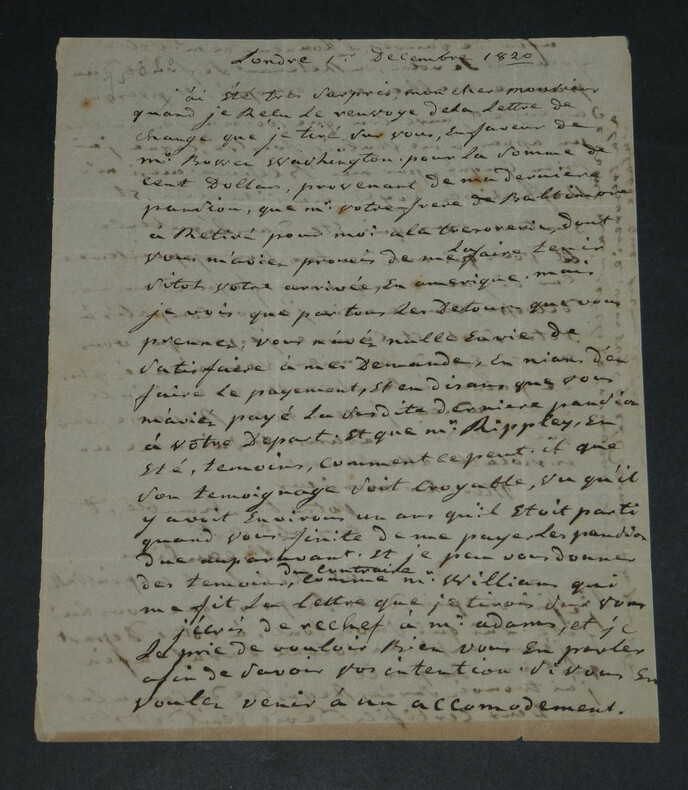 Londre 1er Decembre 1820
j'ai été tres surpris, mon cher monsieur
quand je Recu Le renvoye dela Lettre de
change que je tiré sur vous, En faveur de
mr. Bowen Washington. pour La somme de
cent Dollars, provenant de ma derniere
pansion, que mr. votre frere de Baltimore
à Retiré pour moi ala tresorerie, dont
vous m'aviez promis de me La faire tenir
sitot votre arrivée, En amerique. mais
je vois que par tous Les Detours que vous
prennez, vous n'avéz nulle Envie de
satisfaire à mes Demande, En niant d'en
faire Le payement, Et en disans que vous
m'aviéz payé La susdite derniere pansion
á vòtre Depart. Et que mr. Rippley, En
Eté, temoins, comment ce peut. il que
son temoignage soit croyable, vu qu'il
y avoit Environs un ans qu'il Etoit parti
quand vous finite de me payer Les pansion
due auparavant. Et je peu vous donner
des temoins, du Contraire comme mr. Williams qui
me fit La Lettre que je tirois sur vous
j'écris de rechef à mr. adams, et je
Le prie de vouloir Bien vous En parler
afin de savoir vos intention. si vous En
voulez venir à un accomodement.